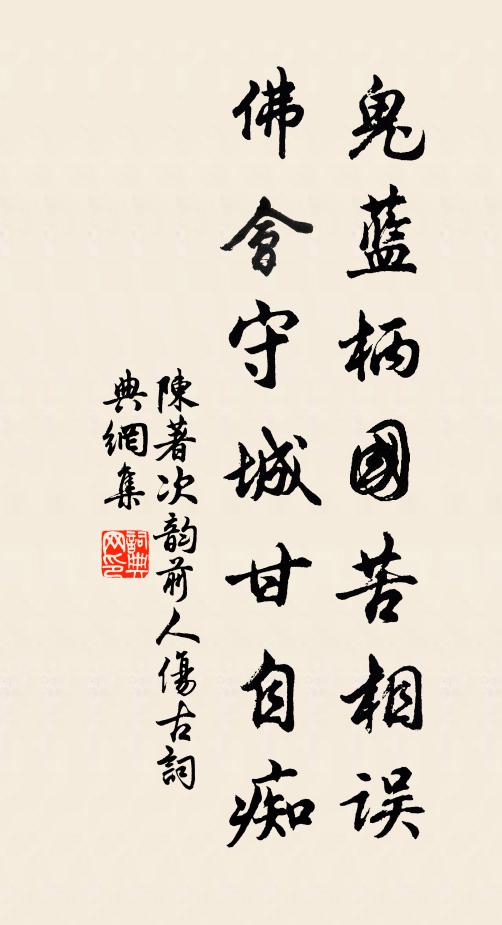 鬼藍柄國苦相误
佛會守城甘自痴
陳著次韵前人傷古詞
典網集
詞典网印